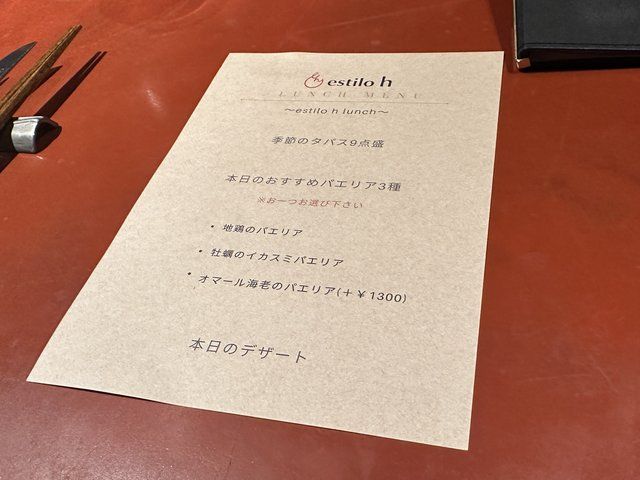 estilo h
LUNCH MENU
～estilo h lunch～
季節のタパス9点盛
本日のおすすめパエリア3種
※お一つお選び下さい
・ 地鶏のパエリア
・ 牡蠣のイカスミパエリア
・ オマール海老のパエリア(＋￥1300)
本日のデザート